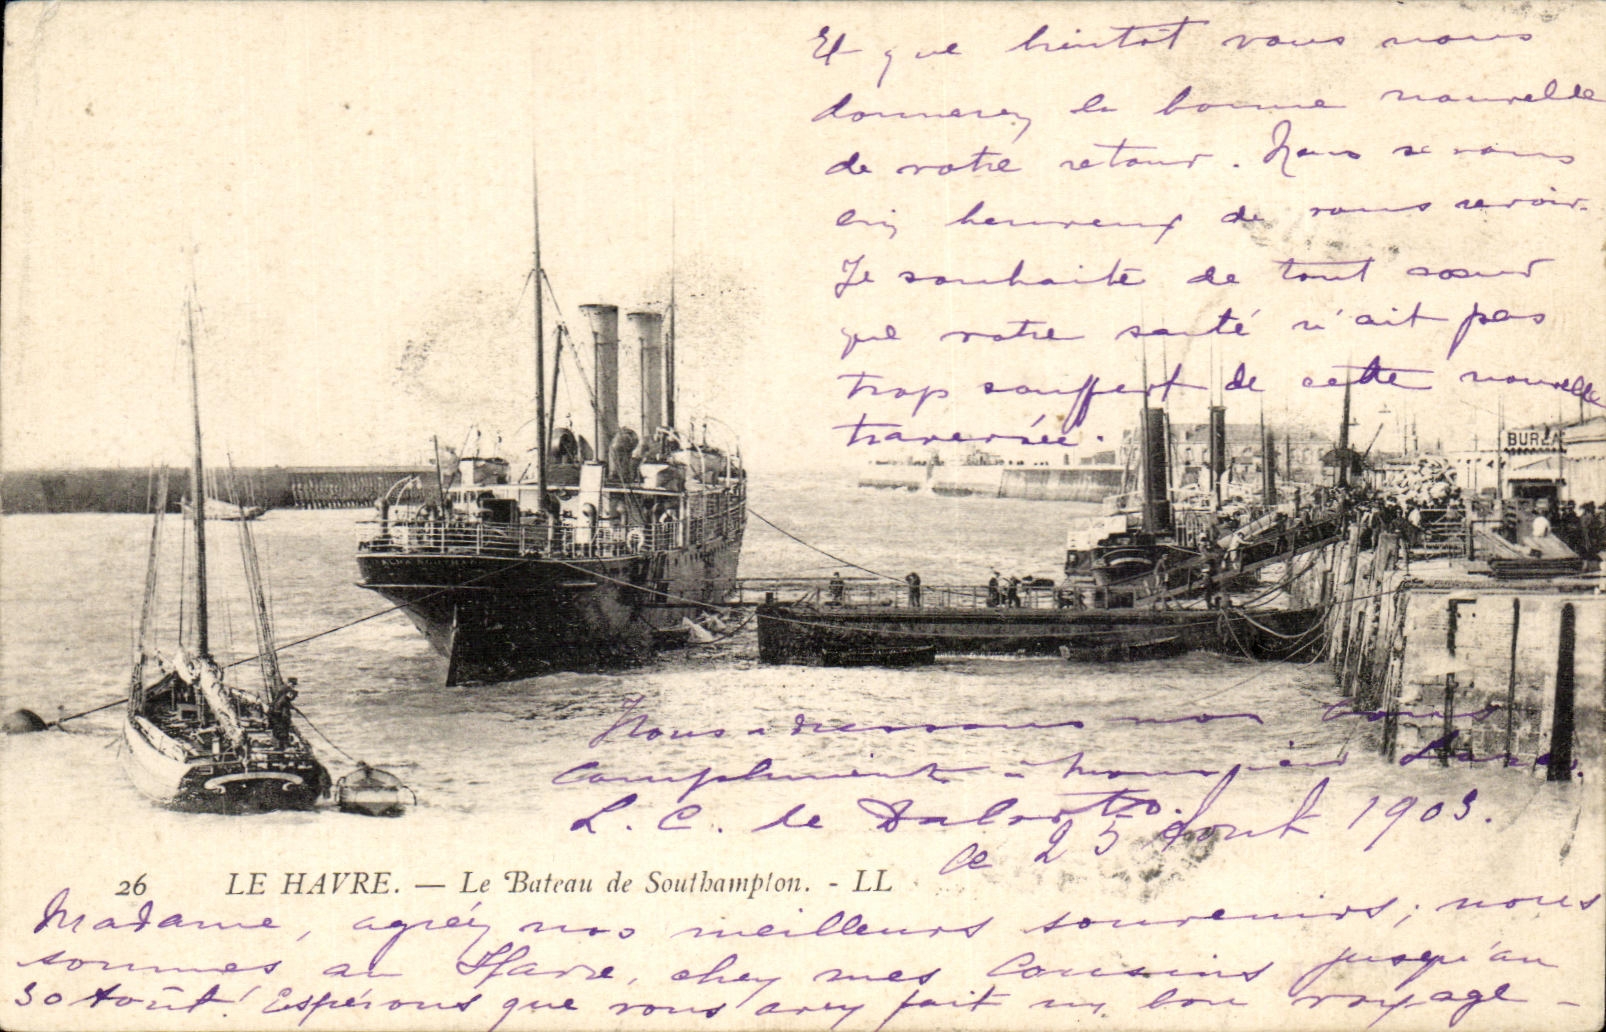 Et que bientôt vous nous
donnerez la bonne nouvelle
de votre retour. Nous serons
bien heureux de vous revoir.
Je souhaite de tout coeur
que votre santé n'ait pas
trop souffert de cette nouvelle
traversée.
BUREA
Nous adressons nos bons
compliments à Monsieur
L. C. de
Ce 25 Août 1903.
26 LE HAVRE. — Le Bateau de Southampton. - LL
Madame, agréez nos meilleurs souvenirs; nous
sommes au Hâvre, chez mes cousins jusqu'au
30 Août! Espérons que vous avez fait un bon voyage -